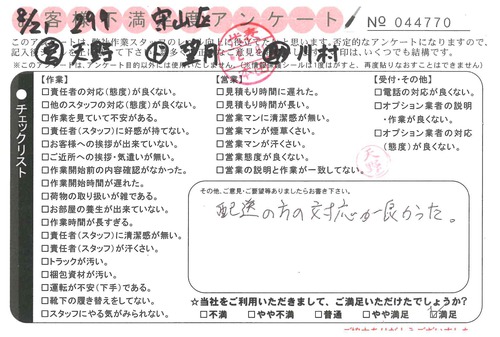 お客様不満足度アンケート
No 044770
8/21 守山区
このアンケートは、弊社作業スタッフの
大野 望月 川村
チェックリスト
【作業】
□責任者の対応(態度)が良くない。
□他のスタッフの対応(態度)が良くない。
□作業を見ていて不安がある。
□責任者(スタッフ)に好感が持てない。
□お客様への挨拶が出来ていない。
□ご近所への挨拶・気遣いが無い。
□作業開始前の内容確認がなかった。
□作業開始時間が遅れた。
□荷物の取り扱いが雑である。
□お部屋の養生が出来ていない。
□作業時間が長すぎる。
□責任者(スタッフ)に清潔感が無い。
□責任者(スタッフ)が汗くさい。
□トラックが汚い。
□梱包資材が汚い。
□運転が不安(下手)である。
□靴下の履き替えをしてない。
□スタッフにやる気がみられない。
【営業】
□見積もり時間に遅れた。
□見積もり時間が長い。
□営業マンに清潔感が無い。
□営業マンが煙草くさい。
□営業マンが汗くさい。
□営業態度が良くない。
□営業の説明と作業が一致してない。
【受付・その他】
□電話の対応が良くない。
□オプション業者の説明
・作業が良くない。
□オプション業者の対応
(態度)が良くない。
天野
その他、ご意見・ご要望等ありましたらお書き下さい。
配送の方の対応が良かった。
☆当社をご利用いただきまして、ご満足いただけたでしょうか?
□不満 □やや不満 □普通 □やや満足 □満足